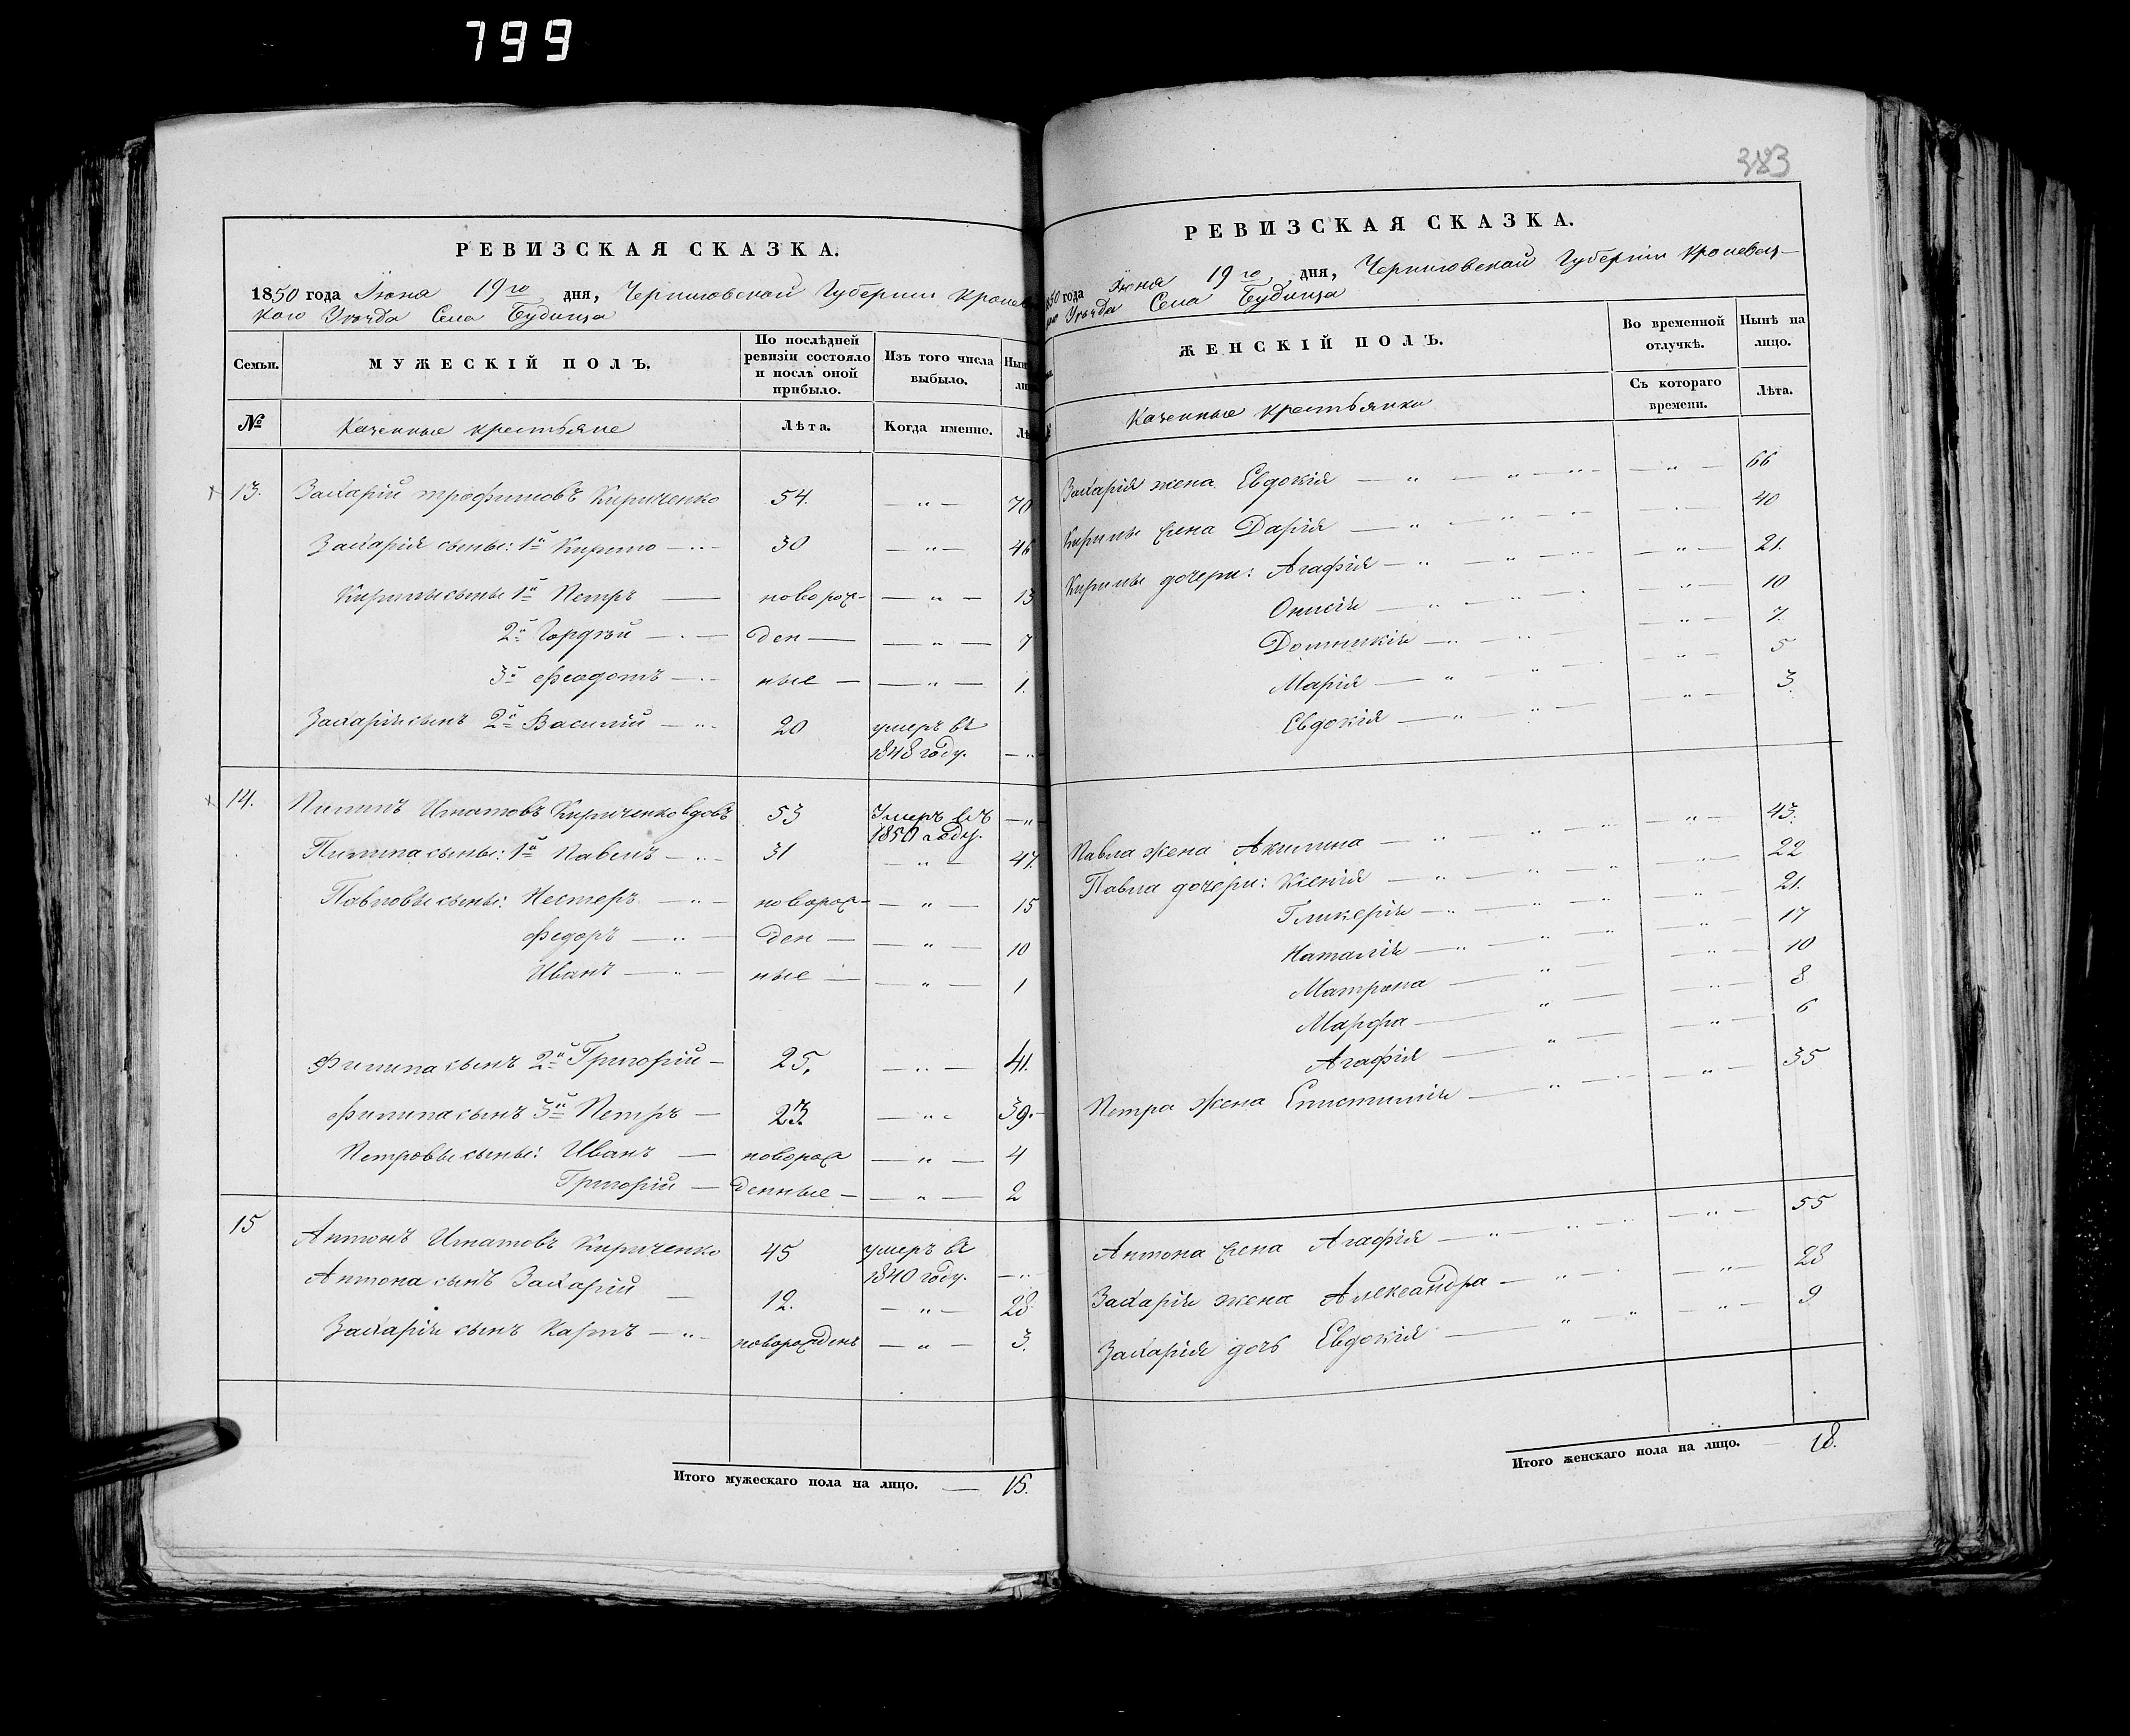 799
РЕВИЗСКАЯ СКАЗКА.
1850 года Іюня 19го дня, Черниговской Губерніи Кролевец-
кого Уезда Села Будища
Семьи.
МУЖЕСКІЙ ПОЛЪ.
По послѣдней ревизіи состояло и послѣ оной прибыло.
Изъ того числа выбыло.
№
Казенные крестьяне
Лѣта.
Когда именно.
13. Захарій трофимовъ Кириченко 54. — „ — 70
Захарія сыны: 1й Кирило — „ — 30 — „ — 46
Кирилы сыны 1й Петръ — новорож- — „ — 13
2й Гордѣй — „ — ден — — „ — 7
3й Феодотъ — „ — ные — — „ — 1.
Захарія сынъ 2й Василій — „ — 20 умеръ въ
1848 году. — „
14. Филипъ Игнатовъ Кириченко вдовъ 53 Умеръ въ — „
1850 году.
Филипа сыны: 1й Павелъ — „ — 31 — „ — 47.
Павловы сыны: Нестеръ — „ — новорож- — „ — 15
Федоръ — „ — ден — — „ — 10
Иванъ — „ — ные — — „ — 1
Филипа сынъ 2й Григорій — 25. — „ — 41.
Филипа сынъ 3й Петръ — 23. — „ — 39.
Петровы сыны: Иванъ — новорож — „ — 4
Григорій — денные — — „ — 2
15 Антонъ Игнатовъ Кириченко 45 умеръ въ
1840 году. — „
Антона сынъ Захарій — 12. — „ — 28.
Захарія сынъ Карпъ — „ — новорожденъ — „ — 3.
Итого мужескаго пола на лицо. — 15.
383
РЕВИЗСКАЯ СКАЗКА.
1850 года Іюня 19го дня, Черниговской Губерніи Кролевец-
Уезда Села Будища
ЖЕНСКІЙ ПОЛЪ.
Во временной отлучкѣ.
Нынѣ на лицо.
Съ котораго времени.
Лѣта.
Казенные крестьянки
Захарія жена Евдокія — „ — „ — „ — — „ — 66
Кирилы жена Дарія — „ — „ — — „ — 40
Кирилы дочери: Агафія — „ — „ — — „ — 21.
Онисія — „ — „ — — „ — 10
Домникія — „ — „ — — „ — 7.
Марія — „ — „ — — „ — 5
Евдокія — „ — „ — — „ — 3.
Павла жена Акилина — „ — „ — „ — „ — 43.
Павла дочери: Ксенія — „ — „ — „ — „ — 22
Гликерія — „ — „ — „ — „ — 21.
Наталія — „ — „ — „ — „ — 17
Матрона — „ — — „ — 10
Марфа — „ — — „ — 8
Агафія — „ — — „ — 6
Петра жена Епистимія — „ — — „ — 35
Антона жена Агафія — „ — „ — — „ — 55
Захарія жена Александра — „ — — „ — 28
Захарія дочь Евдокія — „ — „ — „ — 9
Итого женскаго пола на лицо. — 18.